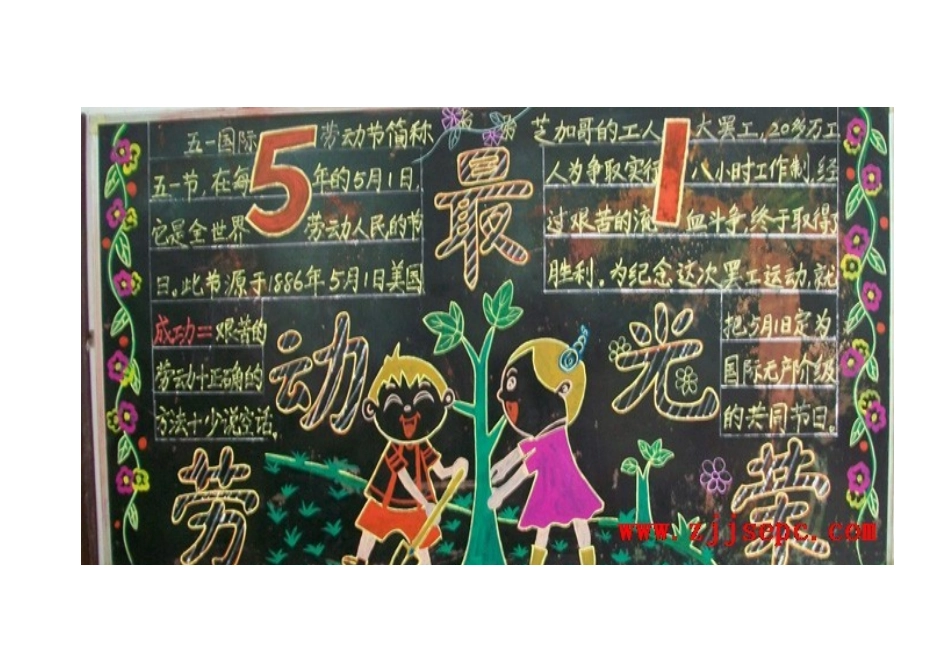 劳动最光荣
5 1
五一国际劳动节简称
五一节,在每年的5月1日.
它是全世界劳动人民的节
日。此节源于1886年5月1日美国
芝加哥的工人大罢工,20多万工
人为争取实行八小时工作制,经
过艰苦的流血斗争,终于取得了
胜利。为纪念这次罢工运动,就
把5月1日定为
国际无产阶级
的共同节日。
成功=艰苦的
劳动+正确的
方法+少说空话。
www.zjjsepc.com